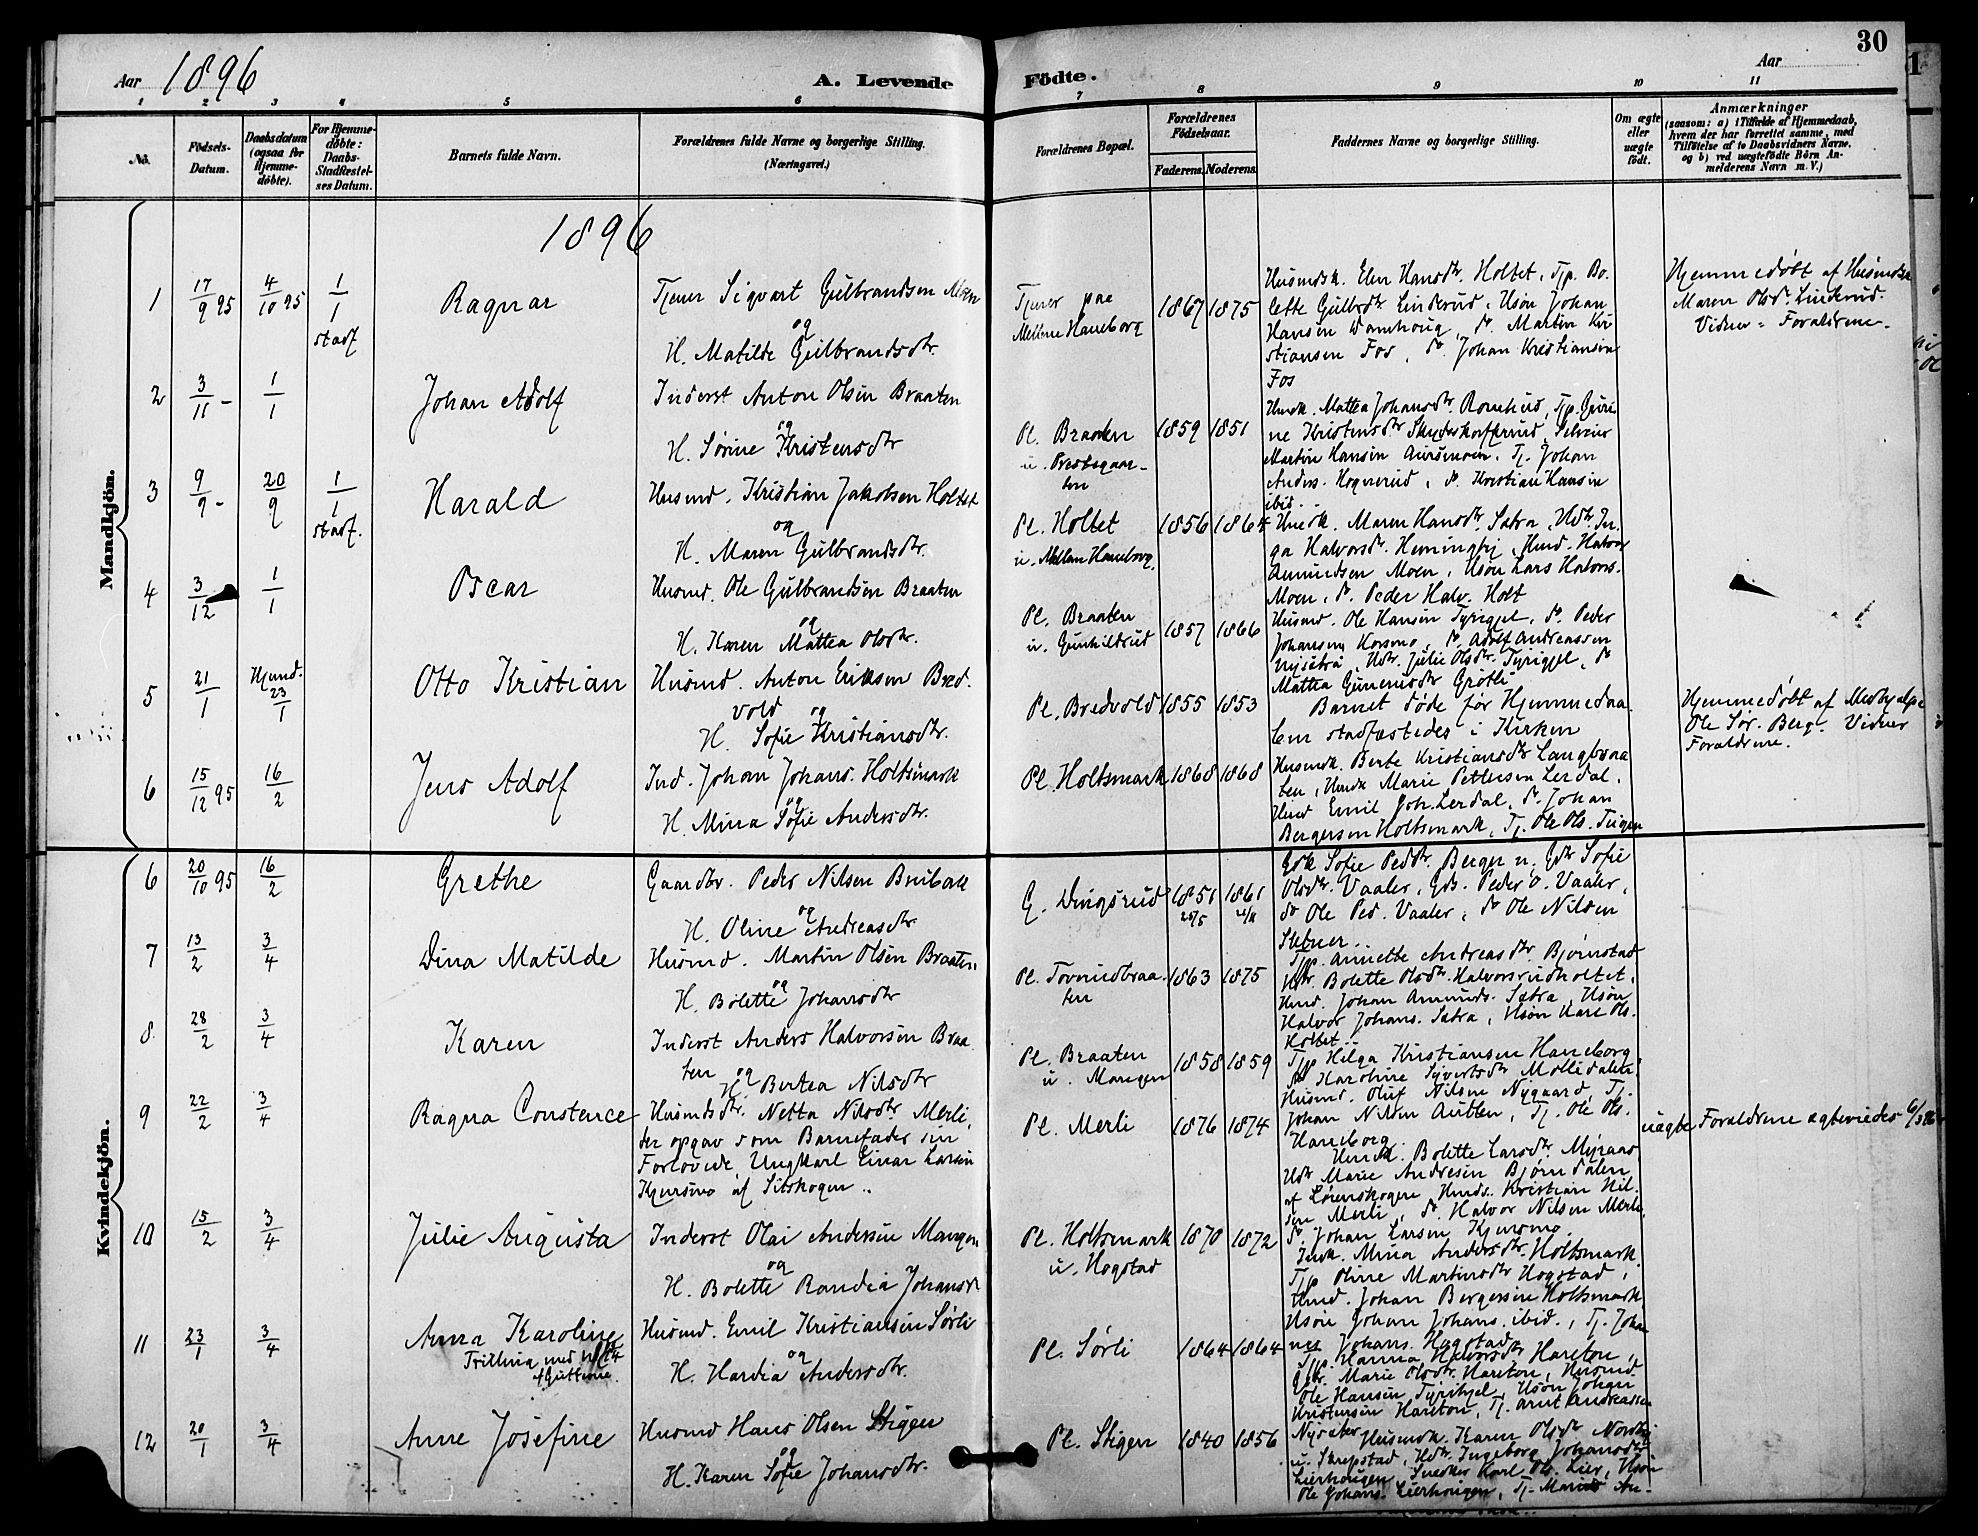 30
Aar 1896
A. Levende Födte.
Aar
1 2 3 4 5 6 7 8 9 10 11
No.
Födsels-Datum.
Daabsdatum (ogsaa for Hjemme-döbte).
For Hjemme-döbte: Daabs-Stadfæstel-ses Datum.
Barnets fulde Navn.
Forældrenes fulde Navne og borgerlige Stilling.
(Næringsvei.)
Forældrenes Bopæl.
Forældrenes Födselsaar.
Faderens. Moderens.
Faddernes Navne og borgerlige Stilling.
Om ægte eller uægte födt.
Anmærkninger
(saasom: a) i Tilfælde af Hjemmedaab,
hvem der har forrettet samme, med
Tilföielse af to Daabsvidners Navne,
og b) ved uægtefödte Börn An-
melderens Navn m. V.)
Mandkjön.
1896
1 17/9 95 4/10 95 1/1 stadf Ragnar
Tjener Sigvart Gulbrandsen
og
H. Matilde Gulbrandsdtr.
Tjener paa
Mellem Haneborg
1867 1875
Husmdsk. Elen Hansdtr. Holtet, Tjp. Bo-
lette Gulbrdtr Linderud, Usøn Johan
Hansen, do Martin Kri
stiansen Fos, do Johan Kristiansen
Fos
Hjemmedøbt af Husmdsk
Maren Olsd. Linderud.
Vidner = Forældrene.
2 3/11 - 1/1 Johan Adolf
Inderst Anton Olsen Braaten
og
H. Sørine Kristensdtr
Pl. Braaten
u. Prestegaar-
ten
1859 1851
Husmk. Mattea Johansdtr. Tjp. Guri
ne Kristensdtr
Martin Hansen Aursmoen, Tj. Johan
Anders. Hognerud, do Kristian Hansen
ibid.
3 9/9 - 20/9 1/1 stadf. Harald
Husmd. Kristian Jakobsen Holtet
og
H. Maren Gulbrandsdtr.
Pl. Holtet
u. Mellem Haneborg.
1856 1864
Husmk. Maren Hansdtr. Sætra, Udtr. In-
ga Halvorsdtr. Hemingby, Husmd. Halvor
Amundsen Moen, Usøn Lars Halvors.
Moen, do Peder Halv. Holt
4 3/12 1/1 Oscar
Husmd. Ole Gulbrandsen Braaten
og
H. Karen Mattea Olsdtr.
Pl. Braaten
u. Gunhildrud
1857 1866
Husmd. Ole Hansen Tyrigjel, do Peder
Johansen Korsmo, do Adolf Andreassen
Nysætra, Udtr. Julie Olsdtr. Tyrigjel, do
Mattea Gunerusdtr Grøtli
5 21/1 Hjemd. 23/1 Otto Kristian
Husmd. Anton Eriksen Bred-
vold og
H. Sofie Kristiansdtr.
Pl. Bredvold 1855 1853
Barnet døde før Hjemmedaa-
ben stadfæstedes i Kirken
Hjemmedøbt af Medhjælper
Ole Sør. Berg. Vidner
Forældrene.
6 15/12 95 16/2 Jens Adolf
Ind. Johan Johans. Holtsmark
og
H. Mina Sofie Andersdtr.
Pl. Holtsmark 1868 1868
Husmdk. Berte Kristiansdtr Langbraa
ten, Husmk Marie Pettersen Lerdal,
Husmd Emil Joh. Lerdal, do Johan
Bergersen Holtsmark, Tj. Ole Ols. Teigen
Kvindekjön.
6 20/10 95 16/2 Grethe
Gaardbr. Peder Nilsen
og
H. Oline Andreasdtr
G. Dingsrud 1851 1861
Gdk Sofie Pedsdtr. Berger n. Gdtr Sofie
Olsdtr. Vaaler, Gdb. Peder O. Vaaler,
do Ole Ped. Vaaler, do Ole Nilsen
7 13/2 3/4 Dina Matilde
Husmd. Martin Olsen Braaten
og
H. Bolette Johansdtr
Pl. Tovrudbraa-
ten
1863 1875
Tjp. Annette Andreasdtr. Bjørnstad
Udtr. Bolette Olsdtr. Halvorsrudholtet,
Husmd. Johan Amunds. Sætra, Usøn
Halvor Johans. Sætra, Usøn Karl Ols.
Holtet.
8 28/2 3/4 Karen
Inderst Anders Halvorsen Braa-
ten og
H. Bertea Nilsdtr
Pl. Braaten
u. Mangen
1858 1859
Tjp. Helga Kristiansen Haneborg,
do Karoline Syvertsdtr
Husmd. Oluf Nilsen Nygaard, Tj.
Johan Nilsen Autlen, Tj. Ole Ols.
Haneborg.
9 22/2 3/4 Ragna Constence
Husmdsdtr. Netta Nilsdtr. Merli,
der opgav som Barnefader sin
Forlovede, Ungkarl Einar Larsen
Kjensmo af Sitskogen..
Pl. Merli 1876 1874
Husmdk. Bolette Larsdtr. Myraas
Udtr Marie Andresen Bjørndalen
af Lørenskogen, Husmds. Kristian Nil-
sen Merli, do Halvor Nilsen Merli,
do Johan Larsen Kjensmo
uægte Forældrene ægteviedes 6/3 96
10 15/2 3/4 Julie Augusta
Inderst Olai Andersen Mangen
og
H. Bolette Randia Johansd
Pl. Holtsmark
u. Hogstad
1870 1872
Indk. Mina Andersdtr. Holtsmark,
Tjp Oline Martinsdtr Hogstad,
Husmd. Johan Bergersen Holtsmark
Usøn Johan Johans. ibid., Tj. Johan
nes Johans. Hogstad
11 23/1 3/4 Anna Karoline
Trilling med
Gutterne.
Husmd. Emil Kristiansen Sørli
og
H. Hardia Andersdtr.
Pl. Sørli 1864 1864
Tjp. Hanna Halvorsdtr Hareton,
Gdtr. Marie Olsdtr. Hareton, Husmd.
Ole Hansen Tyrihjel, Usøn Johan
Kristensen Hareton, Tj. Arnt Andreassen
Nysæter
12 20/1 3/4 Anne Josefine
Husmd Hans Olsen Stigen
og
H. Karen Sofie Johansdtr.
Pl. Stigen 1840 1856
Husmdk. Karen Olsdtr
u. Skrepstad, Udtr. Ingeborg Johansdtr
Lierhougen, Snedker Karl Ols. Lier, Usøn
Ole Johans. Lierhougen, Tj. Marius An-